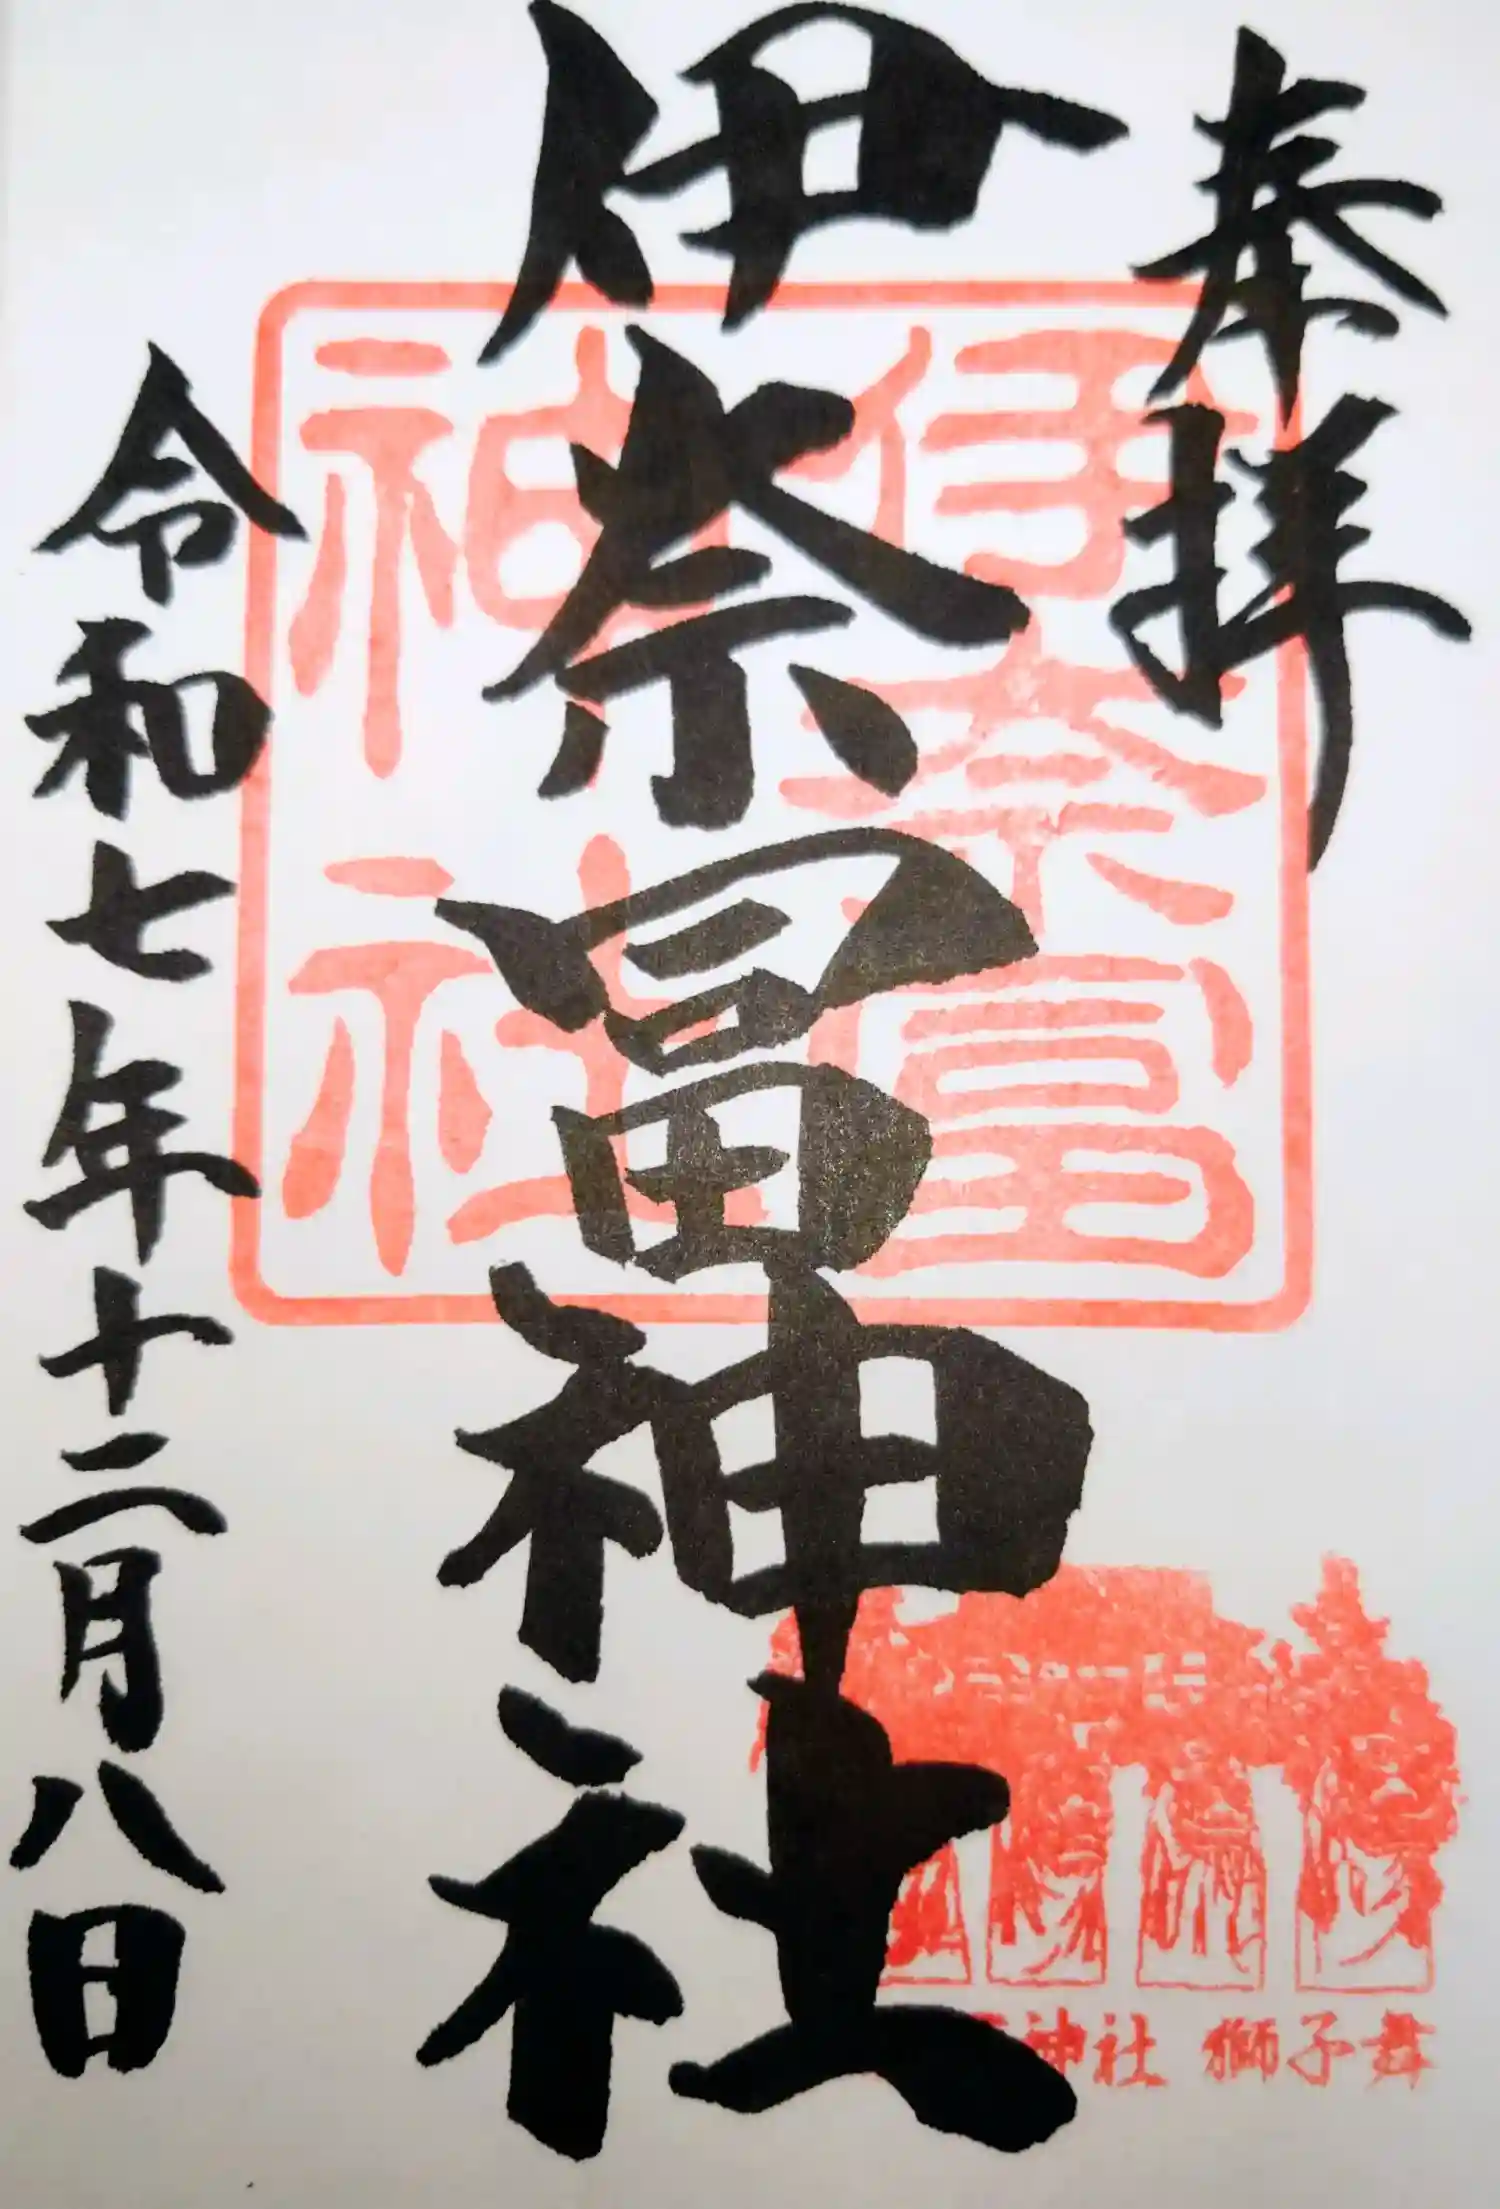 奉拝
伊奈冨神社
伊奈冨
神社
令和七年十二月八日
神社 獅子舞